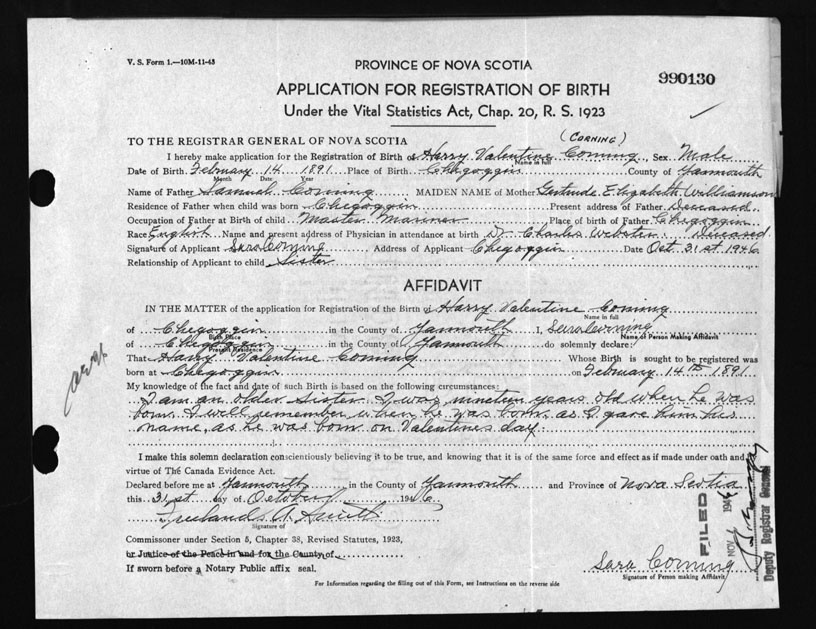 V. S. Form 1.—10M-11-45
PROVINCE OF NOVA SCOTIA
990130
APPLICATION FOR REGISTRATION OF BIRTH
Under the Vital Statistics Act, Chap. 20, R. S. 1923
(CORNING)
TO THE REGISTRAR GENERAL OF NOVA SCOTIA
I hereby make application for the Registration of Birth of Harry Valentine Corning, Sex Male
Name in full
Date of Birth February 14 1891 Place of Birth Chegoggin County of Yarmouth
Month Date Year
Name of Father Samuel Corning MAIDEN NAME of Mother Gertrude Elizabeth Williamson
Residence of Father when child was born Chegoggin Present address of Father Deceased
Occupation of Father at Birth of child Master Mariner Place of birth of Father Chegoggin
Race English Name and present address of Physician in attendance at birth Dr Charles Webster Deceased
Signature of Applicant Sara Corning Address of Applicant Chegoggin Date Oct 31st 1946
Relationship of Applicant to child Sister
AFFIDAVIT
IN THE MATTER of the application for Registration of the Birth of Harry Valentine Corning
Name in full
of Chegoggin in the County of Yarmouth I, Sara Corning
Birth Place Name of Person Making Affidavit
of Chegoggin in the County of Yarmouth do solemnly declare:
Present Residence
That Harry Valentine Corning Whose Birth is sought to be registered was
born at Chegoggin on February 14th 1891
My knowledge of the fact and date of such Birth is based on the following circumstances:
I am an older Sister. I was nineteen years old when he was
born. I well remember when he was born as I gave him his
name, as he was born on Valentines day.
I make this solemn declaration conscientiously believing it to be true, and knowing that it is of the same force and effect as if made under oath and
virtue of The Canada Evidence Act.
Declared before me at Yarmouth in the County of Yarmouth and Province of Nova Scotia
this 31st day of October 1946
Signature of
Commissioner under Section 5, Chapter 38, Revised Statutes, 1923,
or Justice of the Peace in and for the County of
If sworn before a Notary Public affix seal.
FILED
NOV
Deputy Registrar General
Sara Corning
Signature of Person making Affidavit
For Information regarding the filling out of this Form, see Instructions on the reverse side